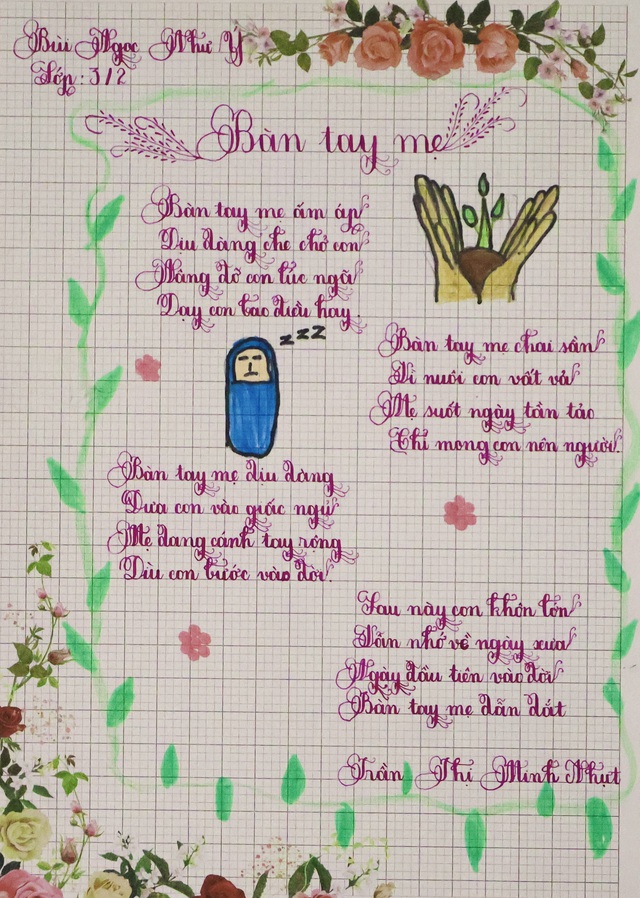 Bùi Ngọc Như Ý
Lớp: 3/2
Bàn tay mẹ
Bàn tay mẹ ấm áp
Dịu dàng che chở con
Nâng đỡ con lúc ngã
Dạy con bao điều hay.
zzz
Bàn tay mẹ chai sần
Vì nuôi con vất vả
Mẹ suốt ngày tần tảo
Chỉ mong con nên người.
Bàn tay mẹ dịu dàng
Đưa con vào giấc ngủ
Mẹ dang cánh tay rộng
Dìu con bước vào đời.
Sau này con khôn lớn
Vẫn nhớ về ngày xưa
Ngày đầu tiên vào đời
Bàn tay mẹ dẫn dắt
Trần Thị Minh Nhựt